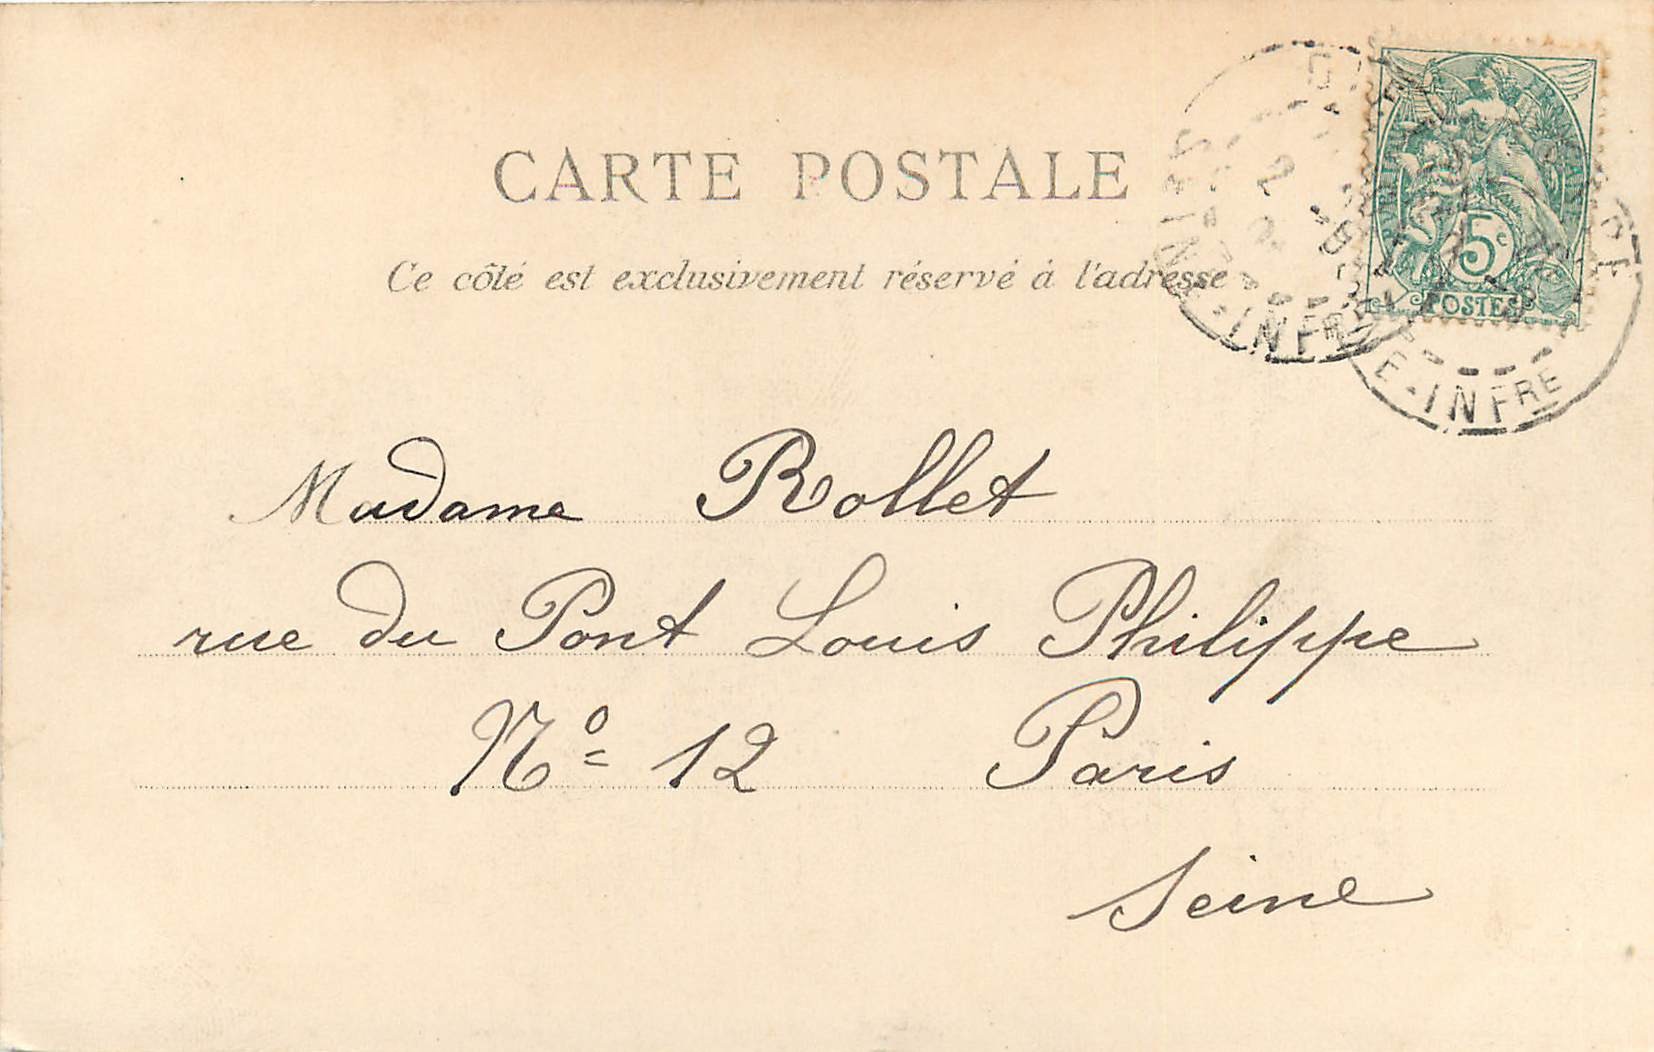 CARTE POSTALE
Ce côté est exclusivement réservé à l'adresse
5c
POSTES
SEINE-INFRE
E-INFRE
Madame Rollet
rue du Pont Louis Philippe
No 12 Paris
Seine